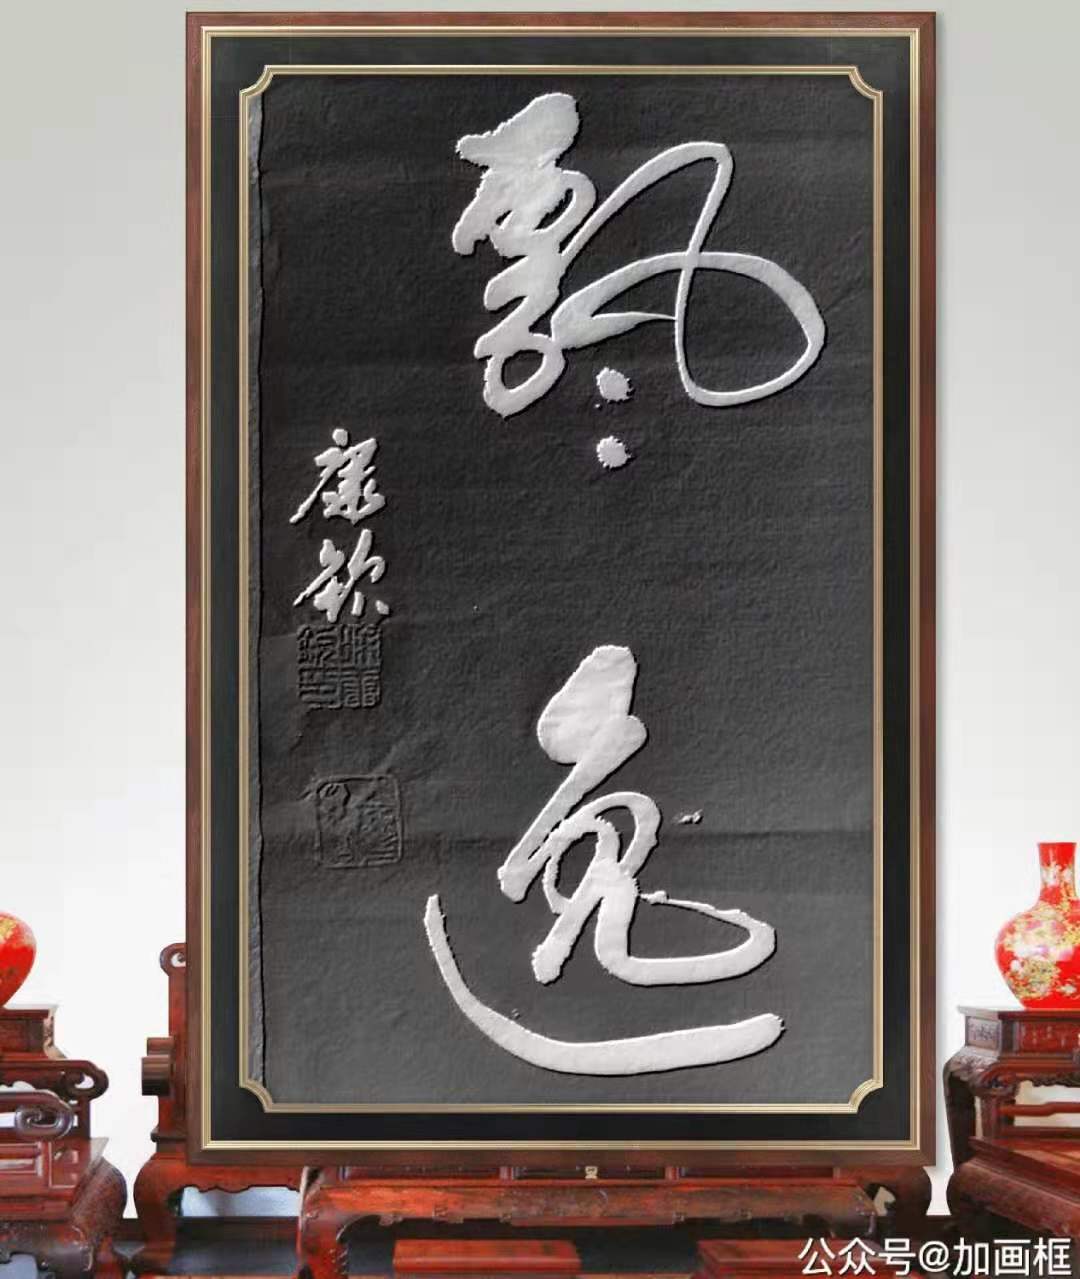 飘逸
康钦
公众号@加画框